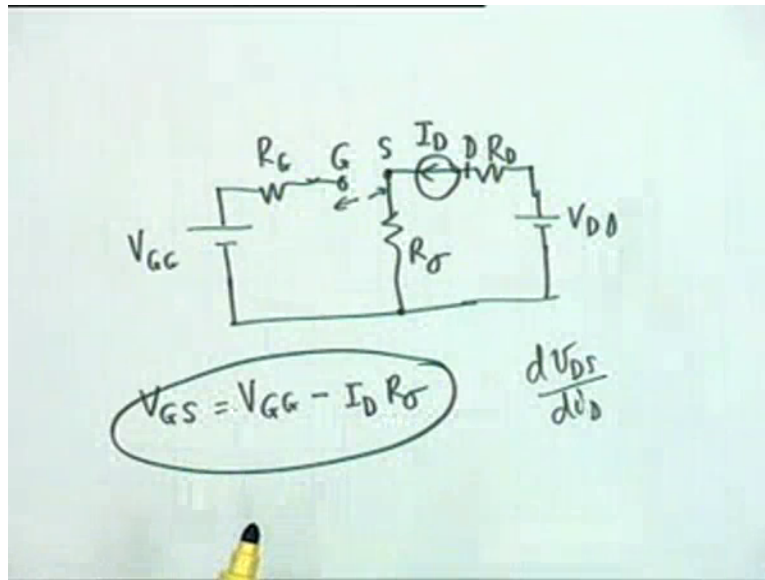 R_G G S I_D D R_D
V_GG R_σ V_DD
V_GS = V_GG - I_D R_σ
dv_DS
di_D